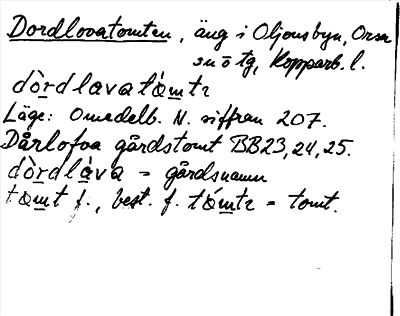 Dordlovatomten, äng i Oljonsbyn, Orsa
sn o tg, Kopparb. l.
dòrdlavatómtɩ
Läge: Omedelb. N. siffran 207.
Dårlofva gårdstomt BB23, 24, 25.
dòrdláva = gårdsnamn
tømt f., best. f. tǿmtɩ = tomt.